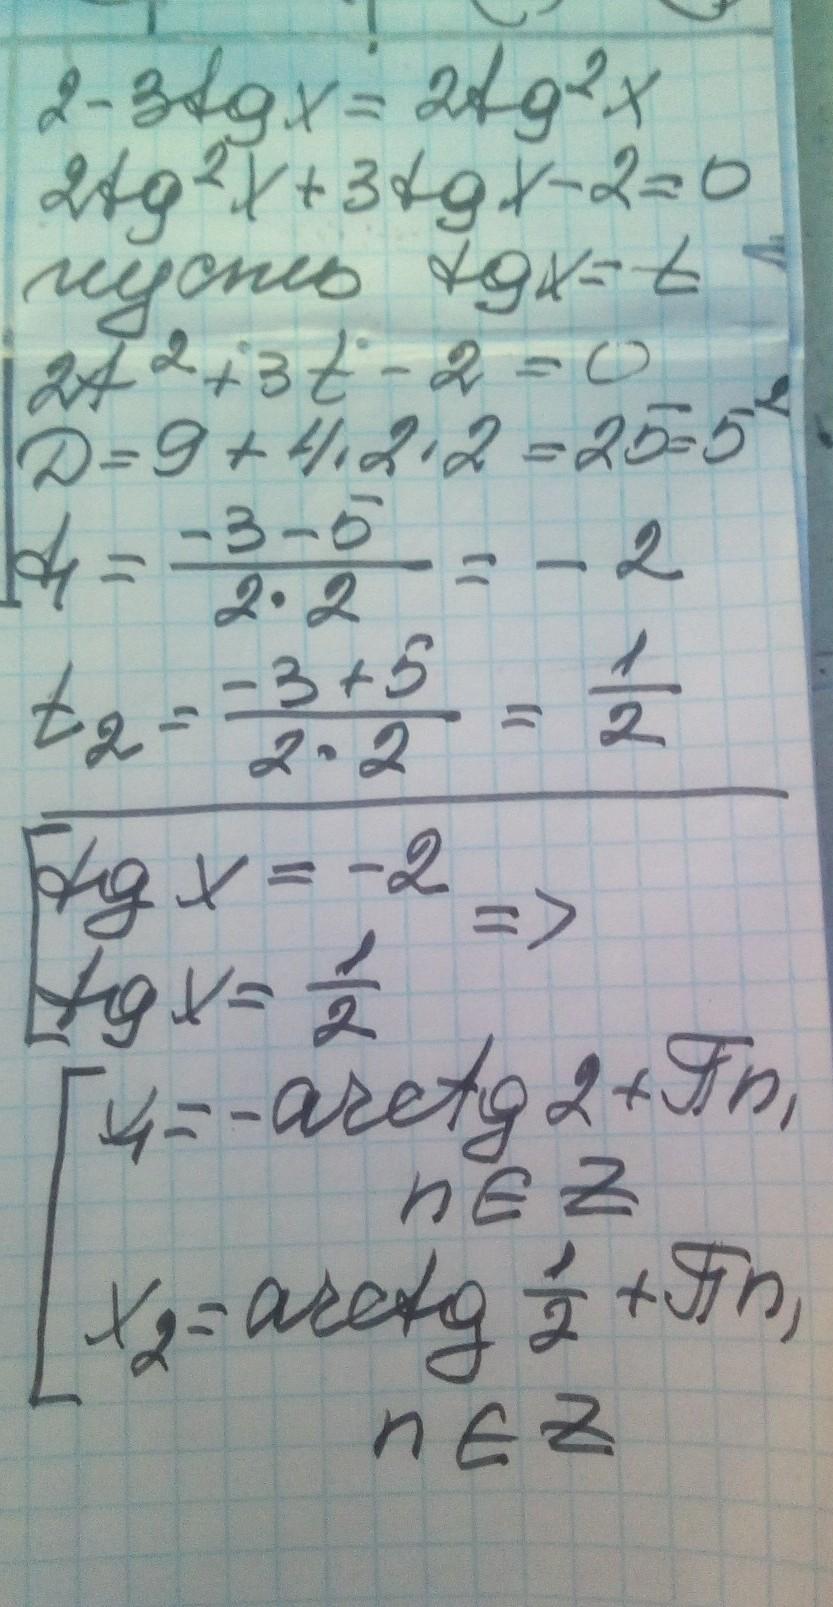 2 - 3tgx = 2tg²x
2tg²x + 3tgx - 2 = 0
пусть tgx = t
2t² + 3t - 2 = 0
D = 9 + 4·2·2 = 25 = 5²
t₁ = (-3-5)/(2·2) = -2
t₂ = (-3+5)/(2·2) = 1/2
[tgx = -2 =>
tgx = 1/2
[x₁ = -arctg 2 + πn,
n ∈ Z
x₂ = arctg 1/2 + πn,
n ∈ Z